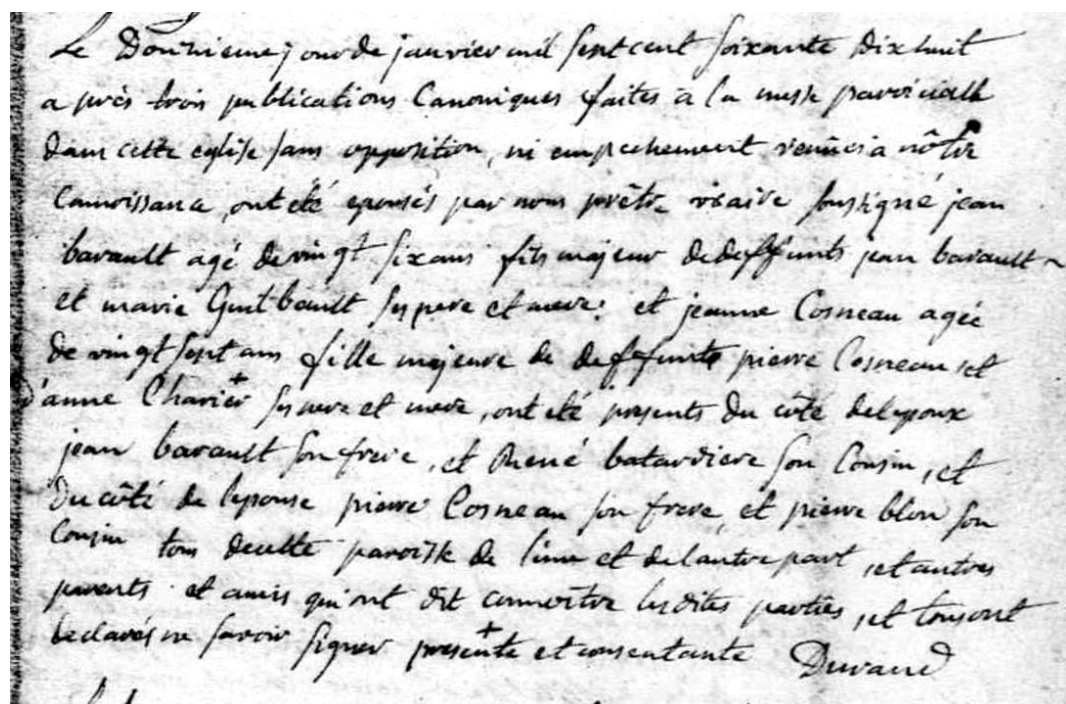 Le Douzieme jour de janvier mil sept cent soixante dix huit
a près trois publications Canoniques faites à la messe paroicialle
dans cette eglise sans opposition, ni empechement venües a nôtre
Connoissance, ont été epousés par nous prêtre vicaire soussigné jean
barault agé de vingt six ans fils majeur de deffunts jean barault
et marie Guilbault ses pere et mere: et jeanne Cosneau agée
de vingt sept ans fille majeure de deffunts pierre Cosneau, et
d'anne Charier + ses pere et mere, ont été presents du côté de lepoux
jean barault son frere, et René batardiere son Cousin, et
du côté de lepouse pierre Cosneau son frere, et pierre blon son
Cousin tous de cette paroisse de l'une et de l'autre part, et autres
parents et amis qui ont dit connoitre lesdites parties, et tous ont
declarés ne savoir signer + presente et consentante Durand